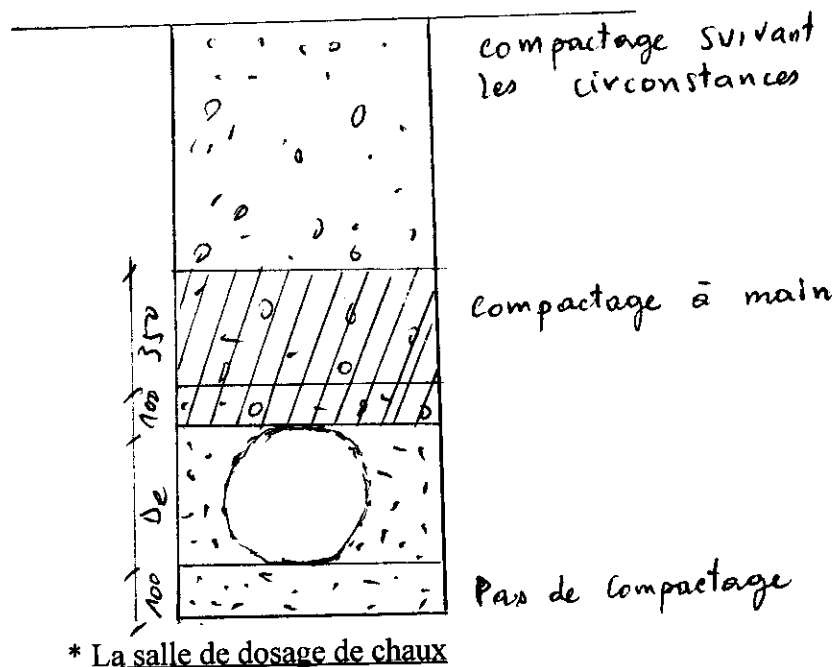 compactage suivant
les circonstances
compactage à main
350
100
De
100
Pas de compactage
* La salle de dosage de chaux